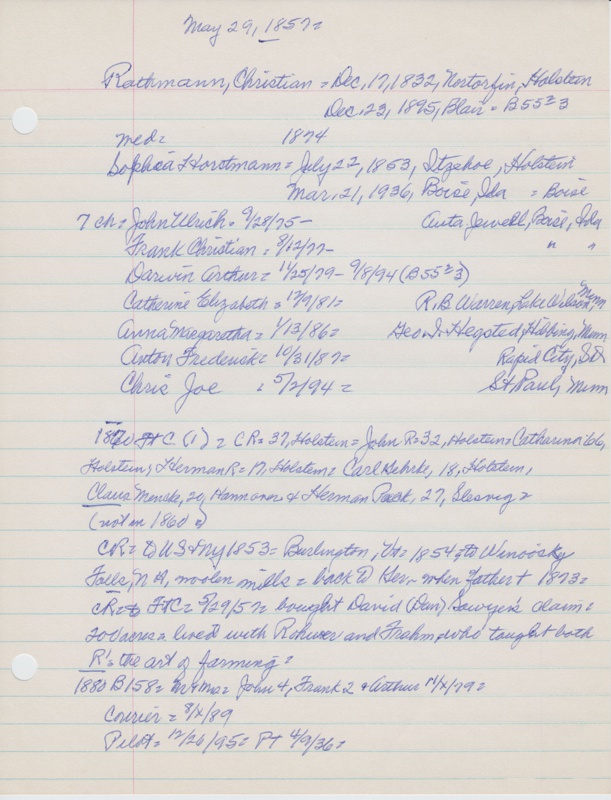 May 29, 1857=
Rathmann, Christian = Dec. 17, 1832, Nortorfin, Holstein
Dec. 23, 1895, Blair = B55=3
med= 1874
Sophia Horstmann = July 22, 1853, Itzehoe, Holstein
Mar. 21, 1936, Boise, Ida = Boise
7 ch = John Ulrich = 9/28/75 - Anta Jewell, Boise, Ida
Frank Christian = 8/12/77- " "
Darwin Arthur = 11/25/79 - 9/8/94 (B55=3)
Catherine Elizabeth = 12/9/81= R.B Warren, Lake Wilson, Minn
Anna Margaretha = 1/13/86= Geo. I. Hegsted, Hibbing, Minn
Anton Frederick = 10/31/87= Rapid City, SD
Chris Joe = 5/2/94 = St Paul, Minn
1870 Ft C (1) = CR=37, Holstein = John R=32, Holstein = Catharina 66,
Holstein; Herman R=17, Holstein = Carl Kehrke, 18, Holstein,
Claus Menske, 29, Hannover & Herman Pack, 27, Slesvig =
(not in 1860 =)
CR = to US & NY 1853 = Burlington, Vt = 1854 = to Winooski
Falls, N H, woolen mills = back to Ger. when father + 1873 =
CR = to FtC = 5/29/57 = bought David (Dan) Sawyer's claim =
acres = lived with Rohwer and Frahm, who taught both
R's the art of farming =
1880 B158 = Mr & Mrs = John 4, Frank 2 & Arthur 11/x/79 =
Courier = 8/x/89
Pilot = 12/26/95 = PT 4/9/36 =